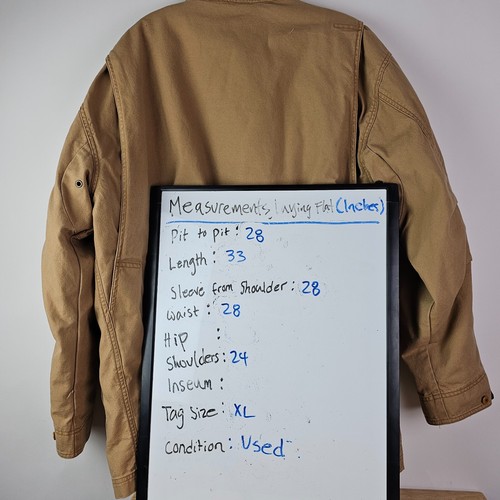 Measurements Laying Flat (Inches)
Pit to Pit: 28
Length: 33
Sleeve from Shoulder: 28
Waist: 28
Hip :
Shoulders: 24
Inseum:
Tag Size: XL
Condition: Used